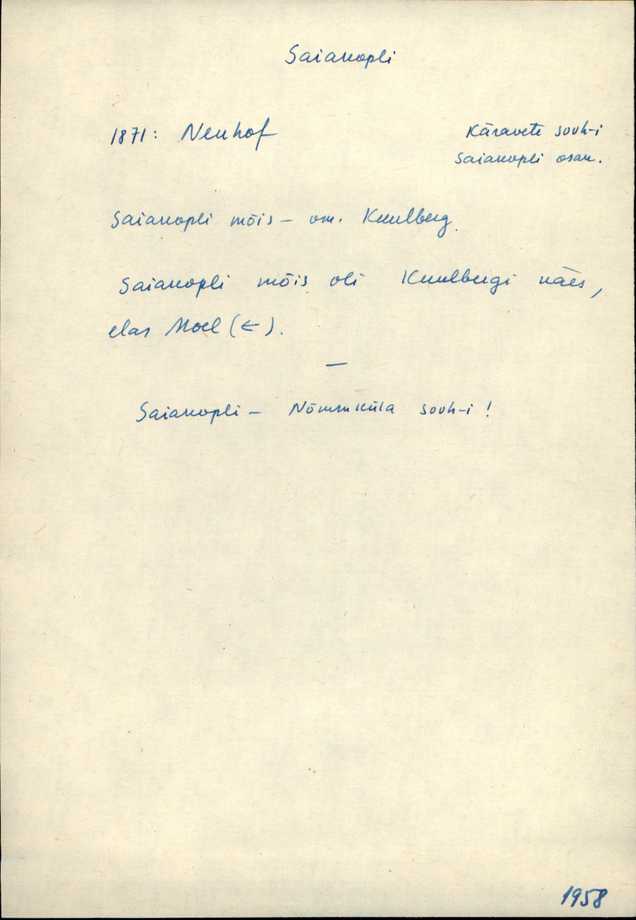 Saianopli
1871: Neuhof
Käravete sovh-i
Saianopli osak.
Saianopli mõis – om. Knulberg.
Saianopli mõis oli Knulbergi käes,
elas Moel (←).
—
Saianopli – Nõmmküla sovh-i!
1958